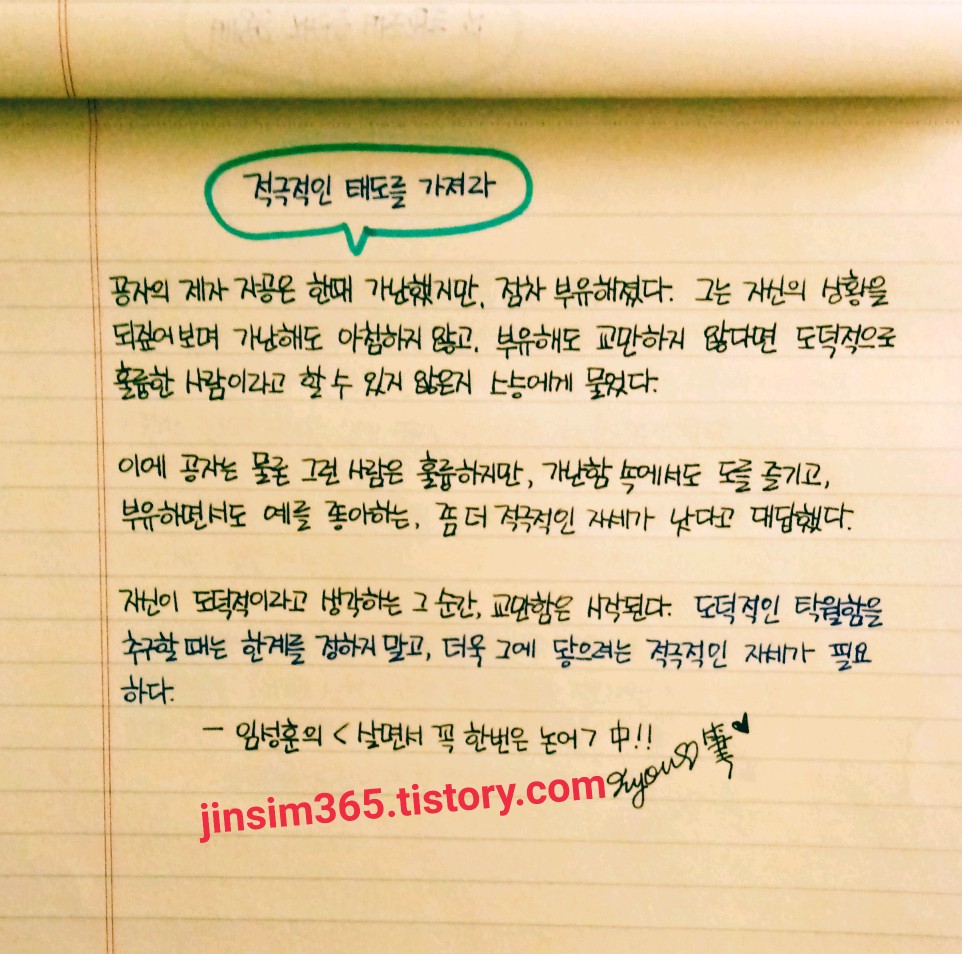 적극적인 태도를 가져라
공자의 제자 자공은 한때 가난했지만, 점차 부유해졌다. 그는 자신의 상황을
되짚어보며 가난해도 아첨하지 않고, 부유해도 교만하지 않다면 도덕적으로
훌륭한 사람이라고 할 수 있지 않은지 스승에게 물었다.
이에 공자는 물론 그런 사람은 훌륭하지만, 가난함 속에서도 도를 즐기고,
부유하면서도 예를 좋아하는, 좀 더 적극적인 자세가 낫다고 대답했다.
자신이 도덕적이라고 생각하는 그 순간, 교만함은 시작된다. 도덕적인 탁월함을
추구할 때는 한계를 정하지 말고, 더욱 그에 닿으려는 적극적인 자세가 필요
하다.
- 임성훈의 < 살면서 꼭 한번은 논어 > 中!!
jinsim365.tistory.com